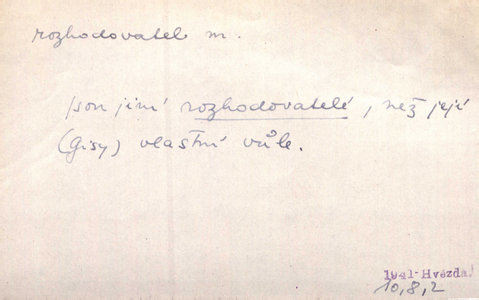 rozhodovatel m.
jsou jiní rozhodovatelé, než její
(Gisy) vlastní vůle.
1941-Hvězda
10,8,2